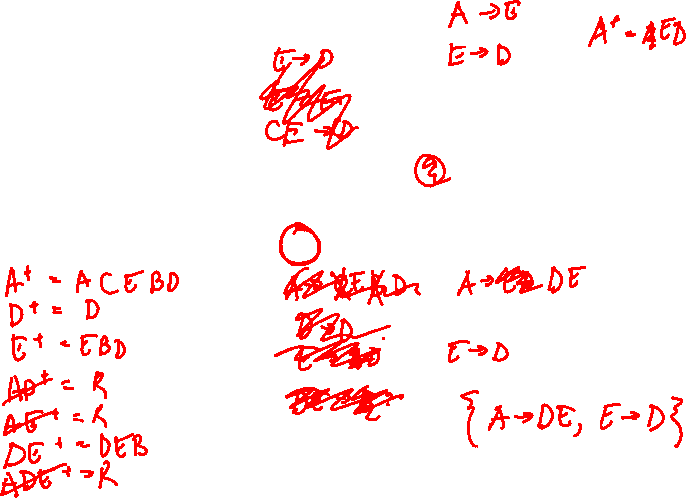 A → E
E → D
A⁺ = AED
E → D
CE → D
2
A⁺ = A C E B D
D⁺ = D
E⁺ = EBD
AD⁺ = R
AE⁺ = R
DE⁺ = DEB
ADE⁺ = R
A → DE
E → D
{ A → DE, E → D }